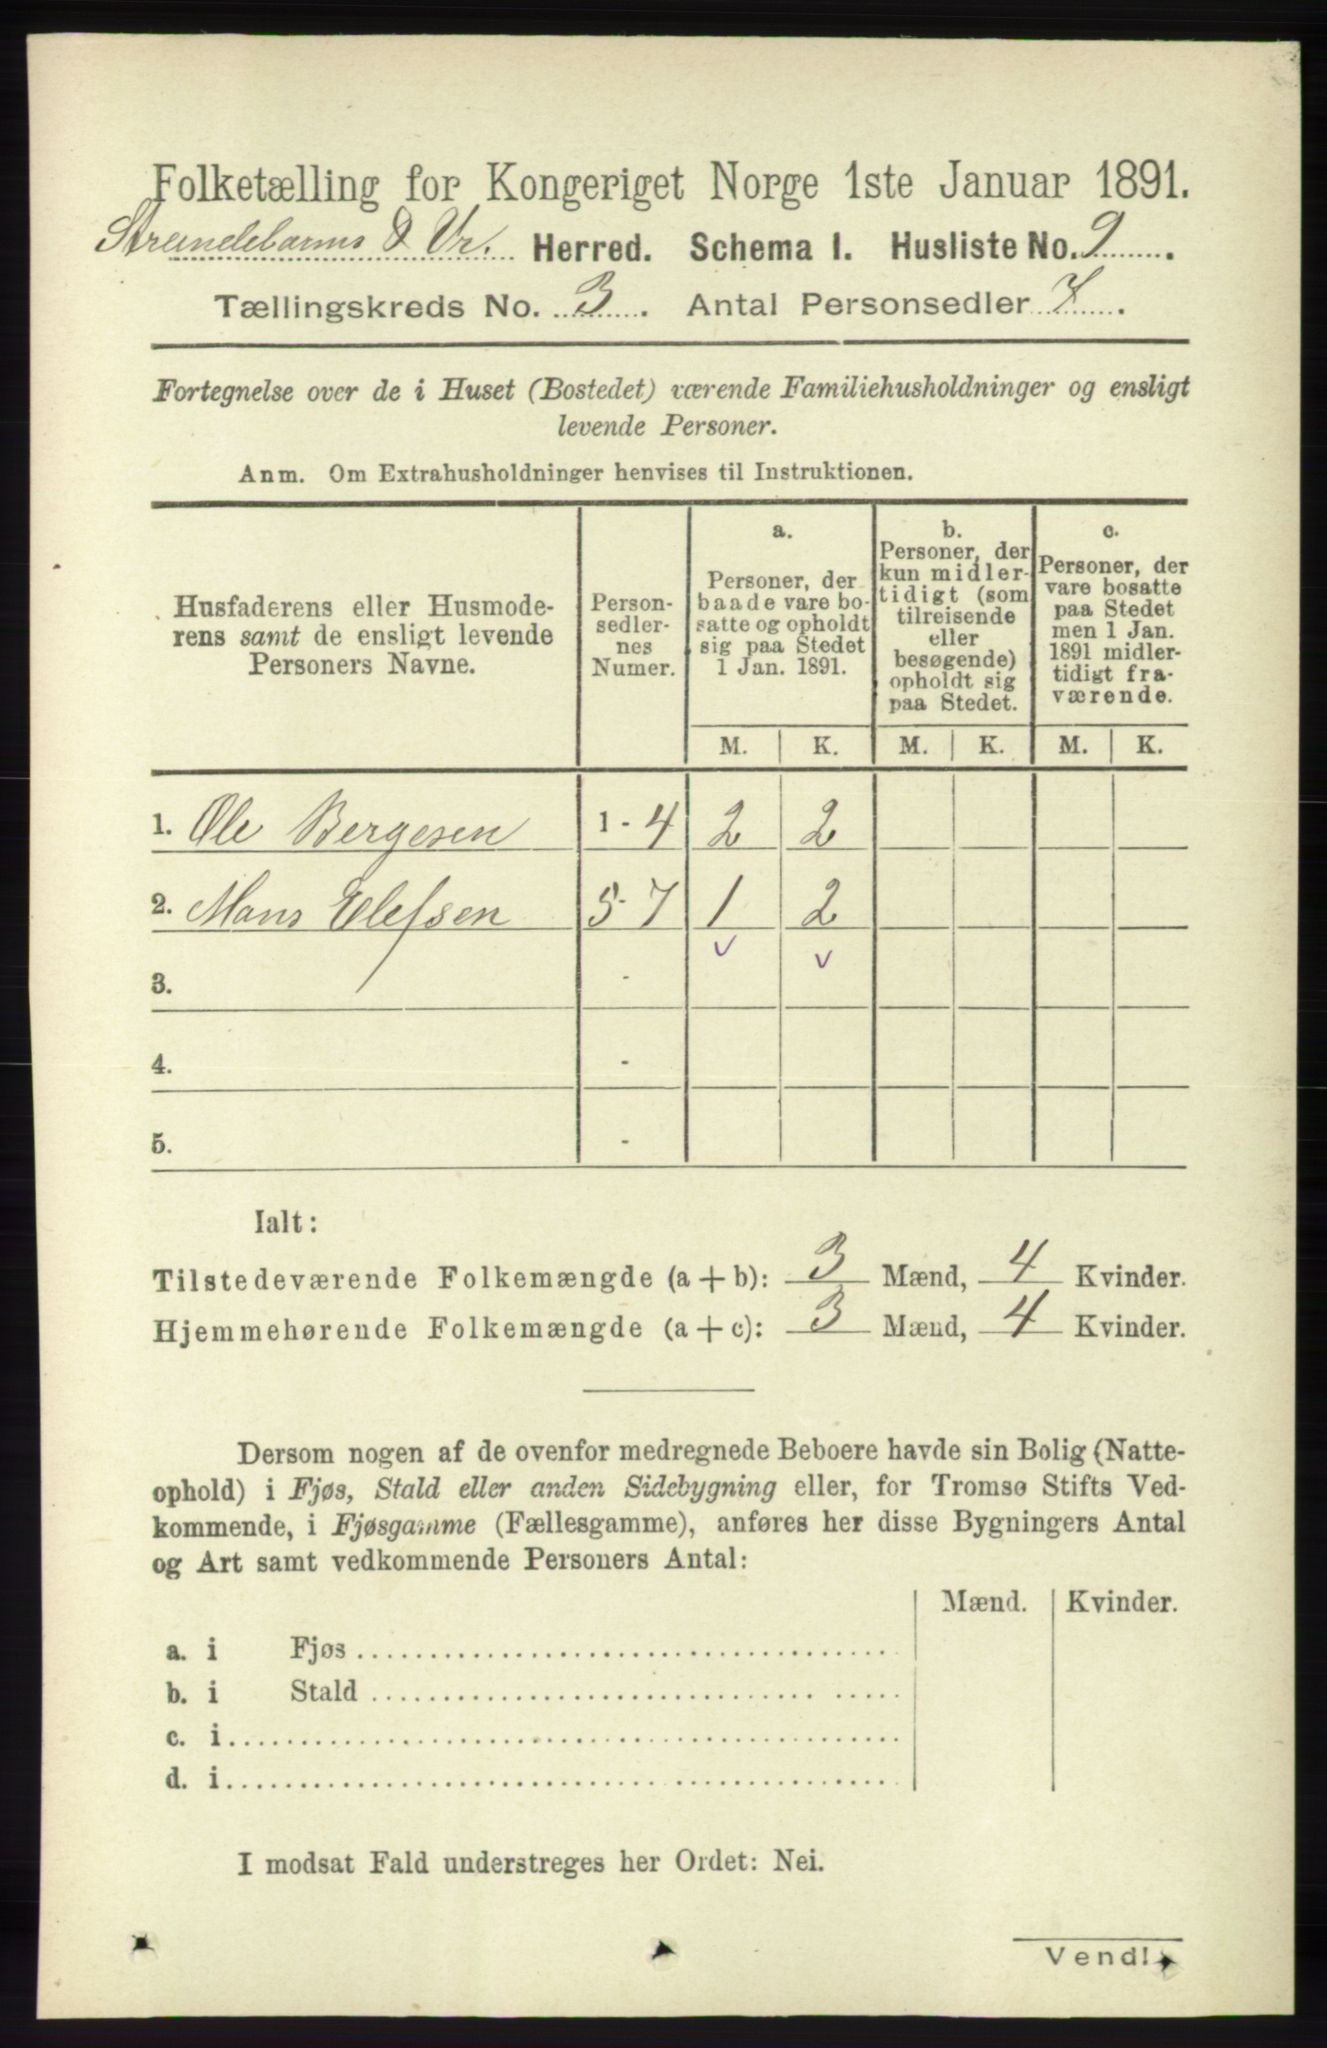 Folketælling for Kongeriget Norge 1ste Januar 1891.
Strandebarms & Vr. Herred. Schema I. Husliste No. 9.
Tællingskreds No. 3. Antal Personsedler 7.
Fortegnelse over de i Huset (Bostedet) værende Familiehusholdninger og ensligt
levende Personer.
Anm. Om Extrahusholdninger henvises til Instruktionen.
Husfaderens eller Husmode-
rens samt de ensligt levende
Personers Navne.
Person-
sedler-
nes
Numer.
a.
Personer, der
baade vare bo-
satte og opholdt
sig paa Stedet
1 Jan. 1891.
b.
Personer, der
kun midler-
tidigt (som
tilreisende
eller
besøgende)
opholdt sig
paa Stedet.
c.
Personer, der
vare bosatte
paa Stedet
men 1 Jan.
1891 midler-
tidigt fra-
værende.
M. K. M. K. M. K.
1. Ole Bergesen 1 - 4 2 2
2. Mons Elefsen 5 - 7 1 2
3. -
4. -
5. -
Ialt:
Tilstedeværende Folkemængde (a + b): 3 Mænd, 4 Kvinder.
Hjemmehørende Folkemængde (a + c): 3 Mænd, 4 Kvinder.
Dersom nogen af de ovenfor medregnede Beboere havde sin Bolig (Natte-
ophold) i Fjøs, Stald eller anden Sidebygning eller, for Tromsø Stifts Ved-
kommende, i Fjøsgamme (Fællesgamme), anføres her disse Bygningers Antal
og Art samt vedkommende Personers Antal:
Mænd. Kvinder.
a. i Fjøs
b. i Stald
c. i
d. i
I modsat Fald understreges her Ordet: Nei.
Vend!